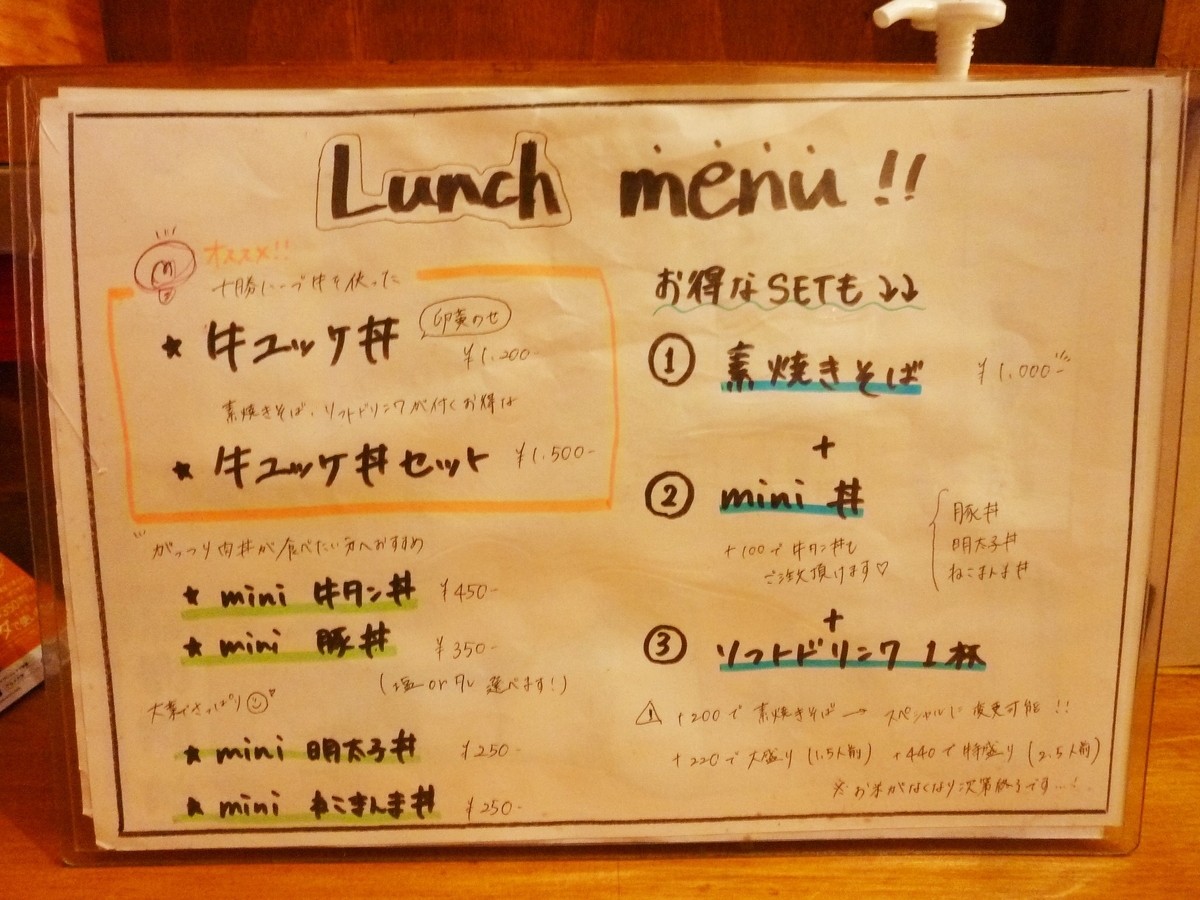 Lunch menu!!
オススメ!!
十勝ハーブ牛を使った
★ 牛ユッケ丼
卵黄のせ
¥1,200-
素焼きそば、ソフトドリンクが付くお得な
★ 牛ユッケ丼セット ¥1,500-
がっつり肉丼が食べたい方へおすすめ
★ mini 牛タン丼 ¥450-
★ mini 豚丼 ¥350-
(塩 or タレ 選べます!)
大葉でさっぱり
★ mini 明太子丼 ¥250-
★ mini ねこまんま丼 ¥250-
お得なSETも ↓↓
① 素焼きそば ¥1,000-
+
② mini 丼
+100で牛タン丼も
ご注文頂けます♡
豚丼
明太子丼
ねこまんま丼
+
③ ソフトドリンク 1杯
+200で 素焼きそば → スペシャルに変更可能 !!
+220で大盛り (1.5人前) +440で特盛り (2.5人前)
※お米がなくなり次第終了です…